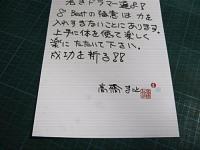 若きドラマー達よ!!
8 Beatの極意は力を
入れすぎないことにあります。
上手に体を使って楽しく
楽にたたいて下さい。
成功を祈る!!
高橋まこと